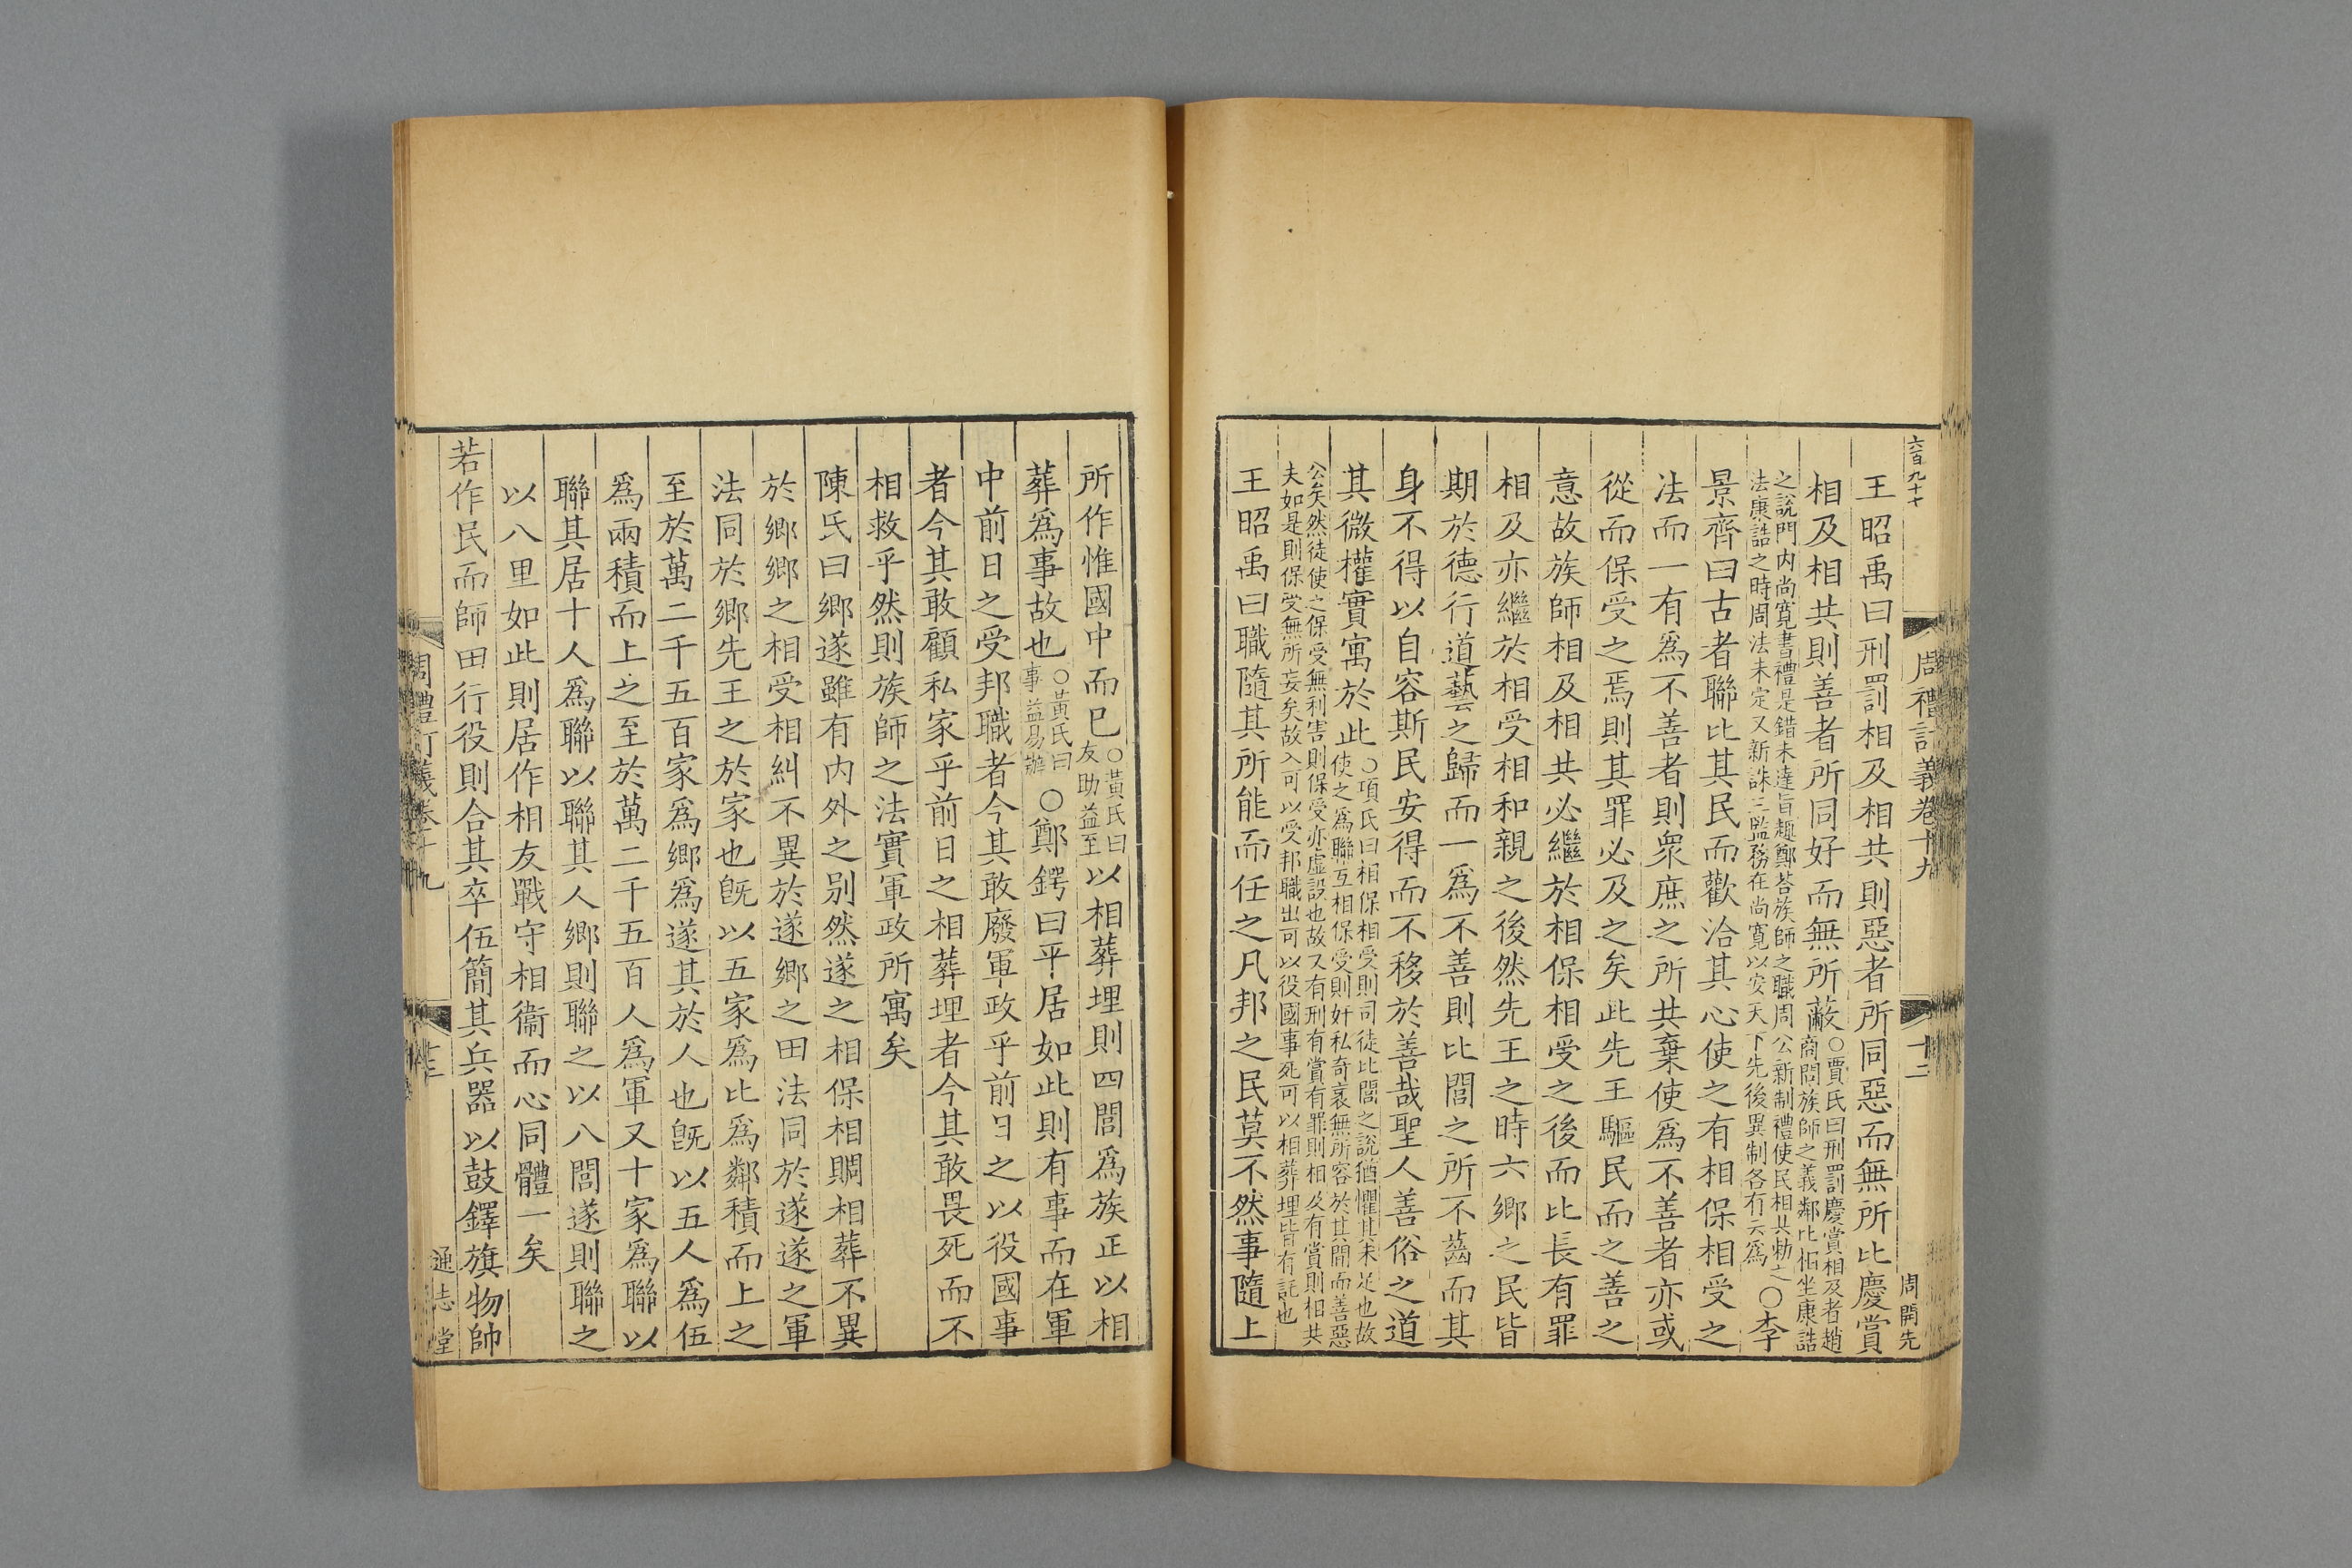 六百九十七
周禮訂義卷十九
十二
周開先
王昭禹曰刑罰相及相共則惡者所同惡而無所比慶賞
相及相共則善者所同好而無所蔽○賈氏曰刑罰慶賞相及者趙
商問族師之義鄰比相坐康誥
之說門內尚寬書禮是錯未達旨趣鄭荅族師之職周公新制禮使民相共勑之
法康誥之時周法未定又新誅三監務在尚寬以安天下先後異制各有云爲
○李
景齊曰古者聯比其民而歡洽其心使之有相保相受之
法而一有爲不善者則衆庶之所共棄使爲不善者亦或
從而保受之焉則其罪必及之矣此先王驅民而之善之
意故族師相及相共必繼於相保相受之後而比長有罪
相及亦繼於相受相和親之後然先王之時六鄉之民皆
期於德行道藝之歸而一爲不善則比閭之所不齒而其
身不得以自容斯民安得而不移於善哉聖人善俗之道
其微權實寓於此○項氏曰相保相受則司徒比閭之說猶懼其未足也故
使之爲聯互相保受則奸私奇衺無所容於其間而善惡
公矣然徒使之保受無利害則保受亦虛設也故又有刑有賞有罪則相及有賞則相共
夫如是則保受無所妄矣故入可以受邦職出可以役國事死可以相葬埋皆有託也
王昭禹曰職隨其所能而任之凡邦之民莫不然事隨上
所作惟國中而已○黃氏曰
友助益至
以相葬埋則四閭爲族正以相
葬爲事故也○黃氏曰
事益易辦
○鄭鍔曰平居如此則有事而在軍
中前日之受邦職者今其敢廢軍政乎前日之以役國事
者今其敢顧私家乎前日之相葬埋者今其敢畏死而不
相救乎然則族師之法實軍政所寓矣
陳氏曰鄉遂雖有內外之别然遂之相保相賙相葬不異
於鄉鄉之相受相糾不異於遂鄉之田法同於遂遂之軍
法同於鄉先王之於家也旣以五家爲比爲鄰積而上之
至於萬二千五百家爲鄉爲遂其於人也旣以五人爲伍
爲兩積而上之至於萬二千五百人爲軍又十家爲聯以
聯其居十人爲聯以聯其人鄉則聯之以八閭遂則聯之
以八里如此則居作相友戰守相衞而心同體一矣
若作民而師田行役則合其卒伍簡其兵器以鼓鐸旗物帥
周禮訂義卷十九
十三
通志堂